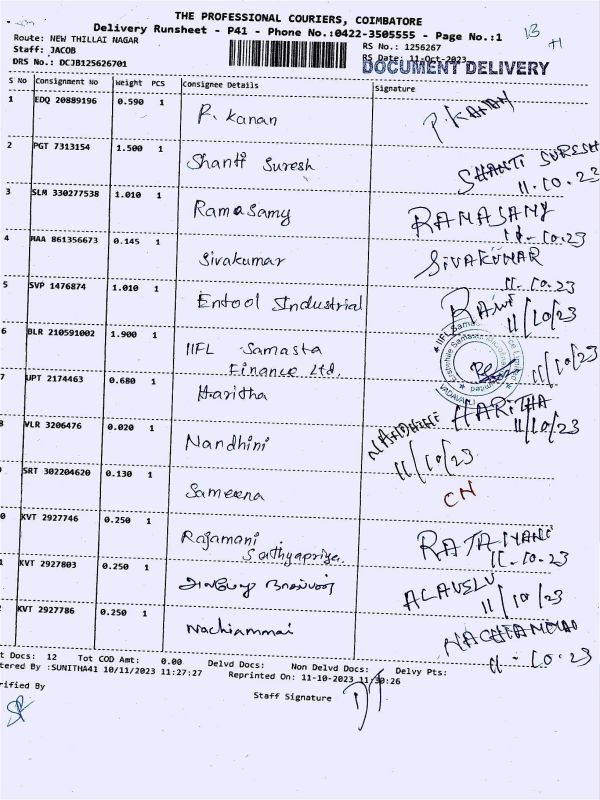 THE PROFESSIONAL COURIERS, COIMBATORE
Delivery Runsheet - P41 - Phone No.:0422-3505555 - Page No.:1
Route: NEW THILLAI NAGAR
RS No.: 1256267
Staff: JACOB
RS Date: 11-Oct-2023
DRS No.: DCJB125626701
DOCUMENT DELIVERY
S No Consignment No Weight PCS Consignee Details Signature
1 EDQ 20889196 0.590 1 P. Kanan P. KANAN
2 PGT 7313154 1.500 1 Shanti Suresh SHANTI SURESH
11.10.23
3 SLM 330277538 1.010 1 Ramasamy RAMASAMY
11-10.23
4 MAA 861356673 0.145 1 Sivakumar SIVAKUMAR
11-10.23
5 SVP 1476874 1.010 1 Entool Industrial RAVI
11/10/23
6 BLR 210591002 1.900 1 IIFL Samasta
Finance Ltd. 11/10/23
7 UPT 2174463 0.680 1 Haritha HARITHA
11/10/23
8 VLR 3206476 0.020 1 Nandhini NANDHINI
11/10/23
SRT 302204620 0.130 1 Sameena CN
0 KVT 2927746 0.250 1 Rajamani
Sathyapriya
11-10-23
1 KVT 2927803 0.250 1 ALAVELU
11/10/23
2 KVT 2927786 0.250 1 Nachiammai
11-10-23
t Docs: 12 Tot COD Amt: 0.00 Delvd Docs: Non Delvd Docs: Delvy Pts:
tered By :SUNITHA41 10/11/2023 11:27:27 Reprinted On: 11-10-2023 11:30:26
rified By
Staff Signature